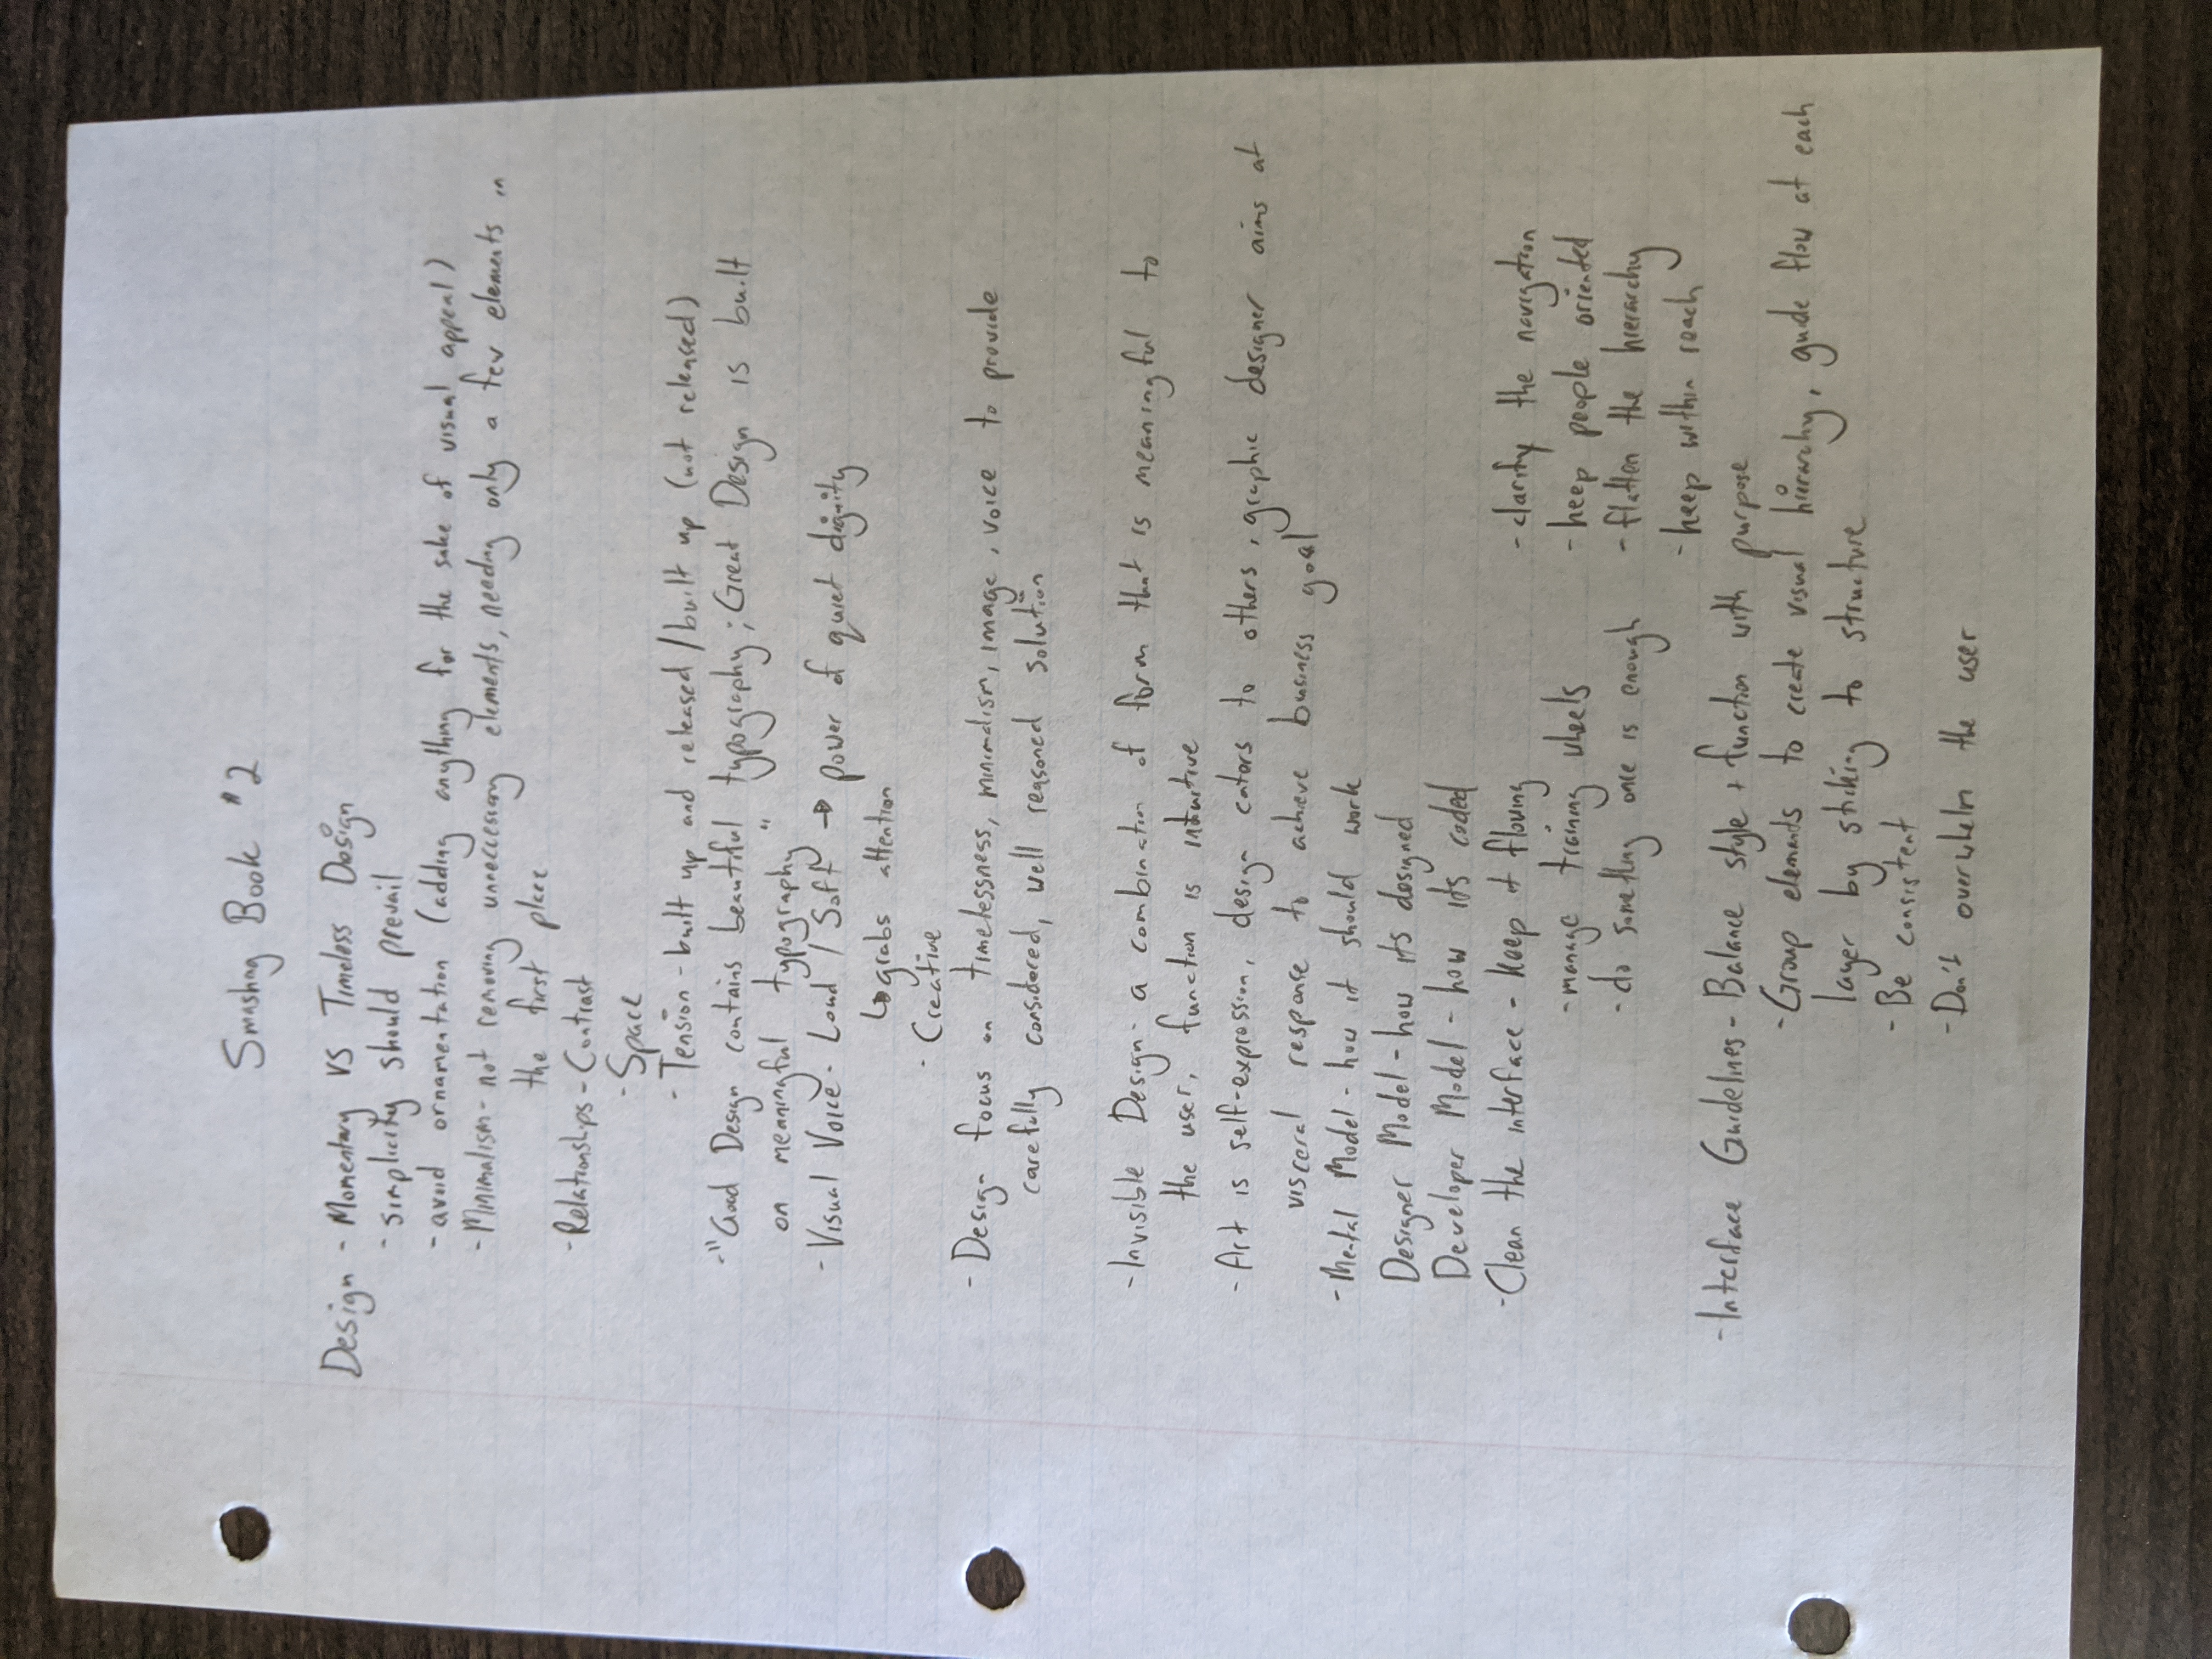 Smashing Book #2
Design - Momentary VS Timeless Design
- simplicity should prevail
- avoid ornamentation (adding anything for the sake of visual appeal)
- Minimalism - not removing unneccessary elements, needing only a few elements in
the first place
- Relationships - Contrast
- Space
- Tension - built up and released / built up (not released)
- "Good Design contains beautiful typography; Great Design is built
on meaningful typography"
- Visual Voice - Loud / Soft → power of quiet dignity
↳ grabs attention
- Creative
- Design focus on timelessness, minimalism, image, voice to provide
carefully considered, well reasoned solution
- Invisible Design - a combination of form that is meaningful to
the user, function is intuitive
- Art is self-expression, design caters to others, graphic designer aims at
visceral response to achieve business goal
- Mental Model - how it should work
Designer Model - how its designed
Developer Model - how its coded
- Clean the interface - Keep it flowing - clarify the navigation
- manage training wheels - keep people oriented
- do something once is enough - flatten the hierarchy
- keep within reach
- Interface Guidelines - Balance style + function with purpose
- Group elements to create visual hierarchy, guide flow at each
layer by sticking to structure
- Be consistent
- Don't overwhelm the user